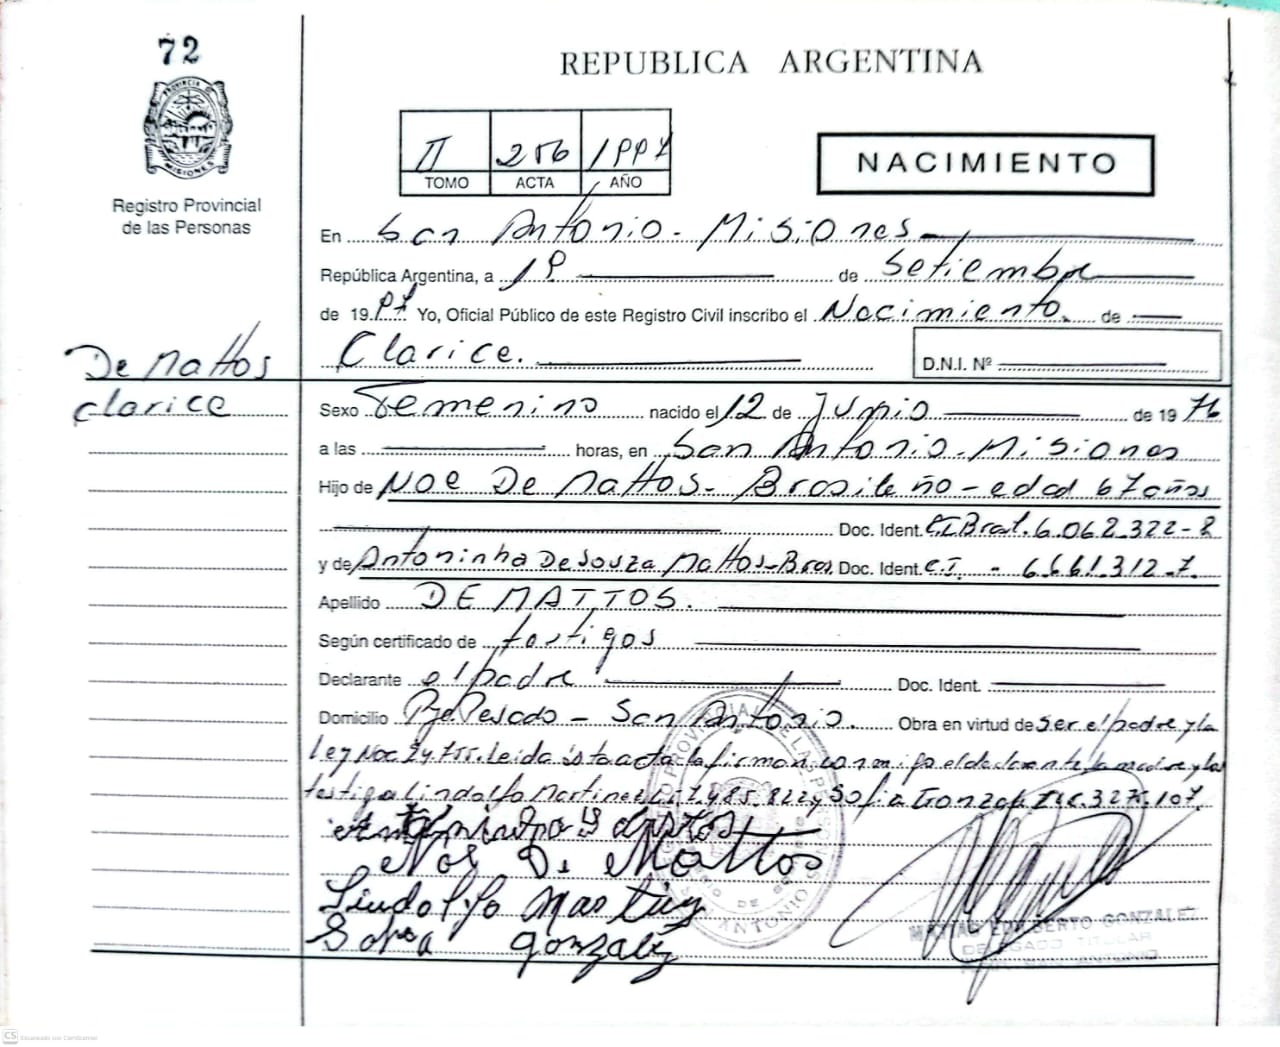 72
REPUBLICA ARGENTINA
PROVINCIA DE MISIONES
Registro Provincial
de las Personas
II 256 1997
TOMO ACTA AÑO
NACIMIENTO
En San Antonio - Misiones
República Argentina, a 19 de Setiembre
de 1997 Yo, Oficial Público de este Registro Civil inscribo el Nacimiento de
Clarice. D.N.I. Nº
De Mattos
Clarice
Sexo Femenino nacido el 12 de Junio de 1976
a las horas, en San Antonio - Misiones
Hijo de Noe De Mattos - Brasileño - edad 67 años
Doc. Ident. C.I Bras. 6.062.322-2
y de Antoninha De Souza Mattos - Bras. Doc. Ident. C.I. - 6.661.312-7.
Apellido DE MATTOS.
Según certificado de testigos
Declarante el padre Doc. Ident.
Domicilio San Antonio. Obra en virtud de ser el padre y la
ley Nac. 24.755. Leida ésta acta la firman conmigo el declarante la madre y los
testigos Lindolfo Martinez 7.485.822 y Sofia Gonzalez 327.107.
Noe De Mattos
Lindolfo Martinez
Sofia Gonzalez
GONZALEZ
DELEGADO TITULAR
SAN ANTONIO
CS Escaneado con CamScanner